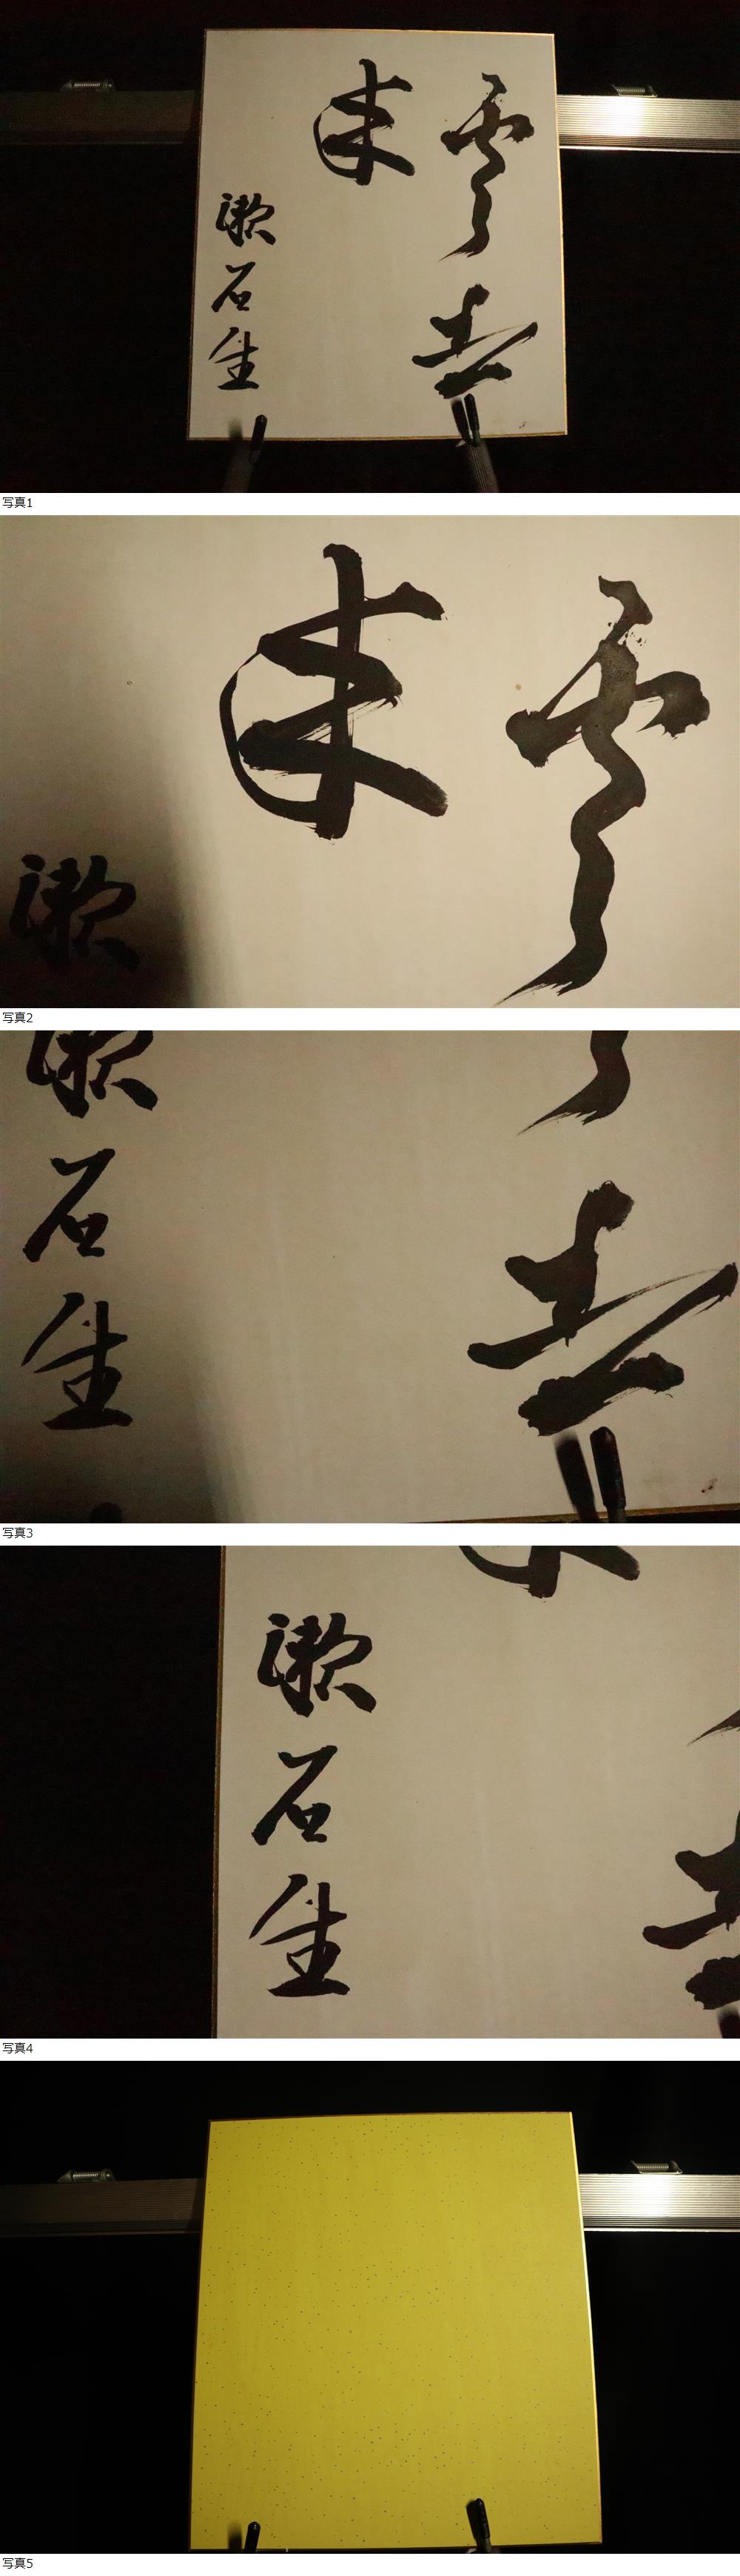 雲去
来
漱石生
写真1
雲
来
漱
写真2
去
石生
写真3
漱石生
写真4
写真5